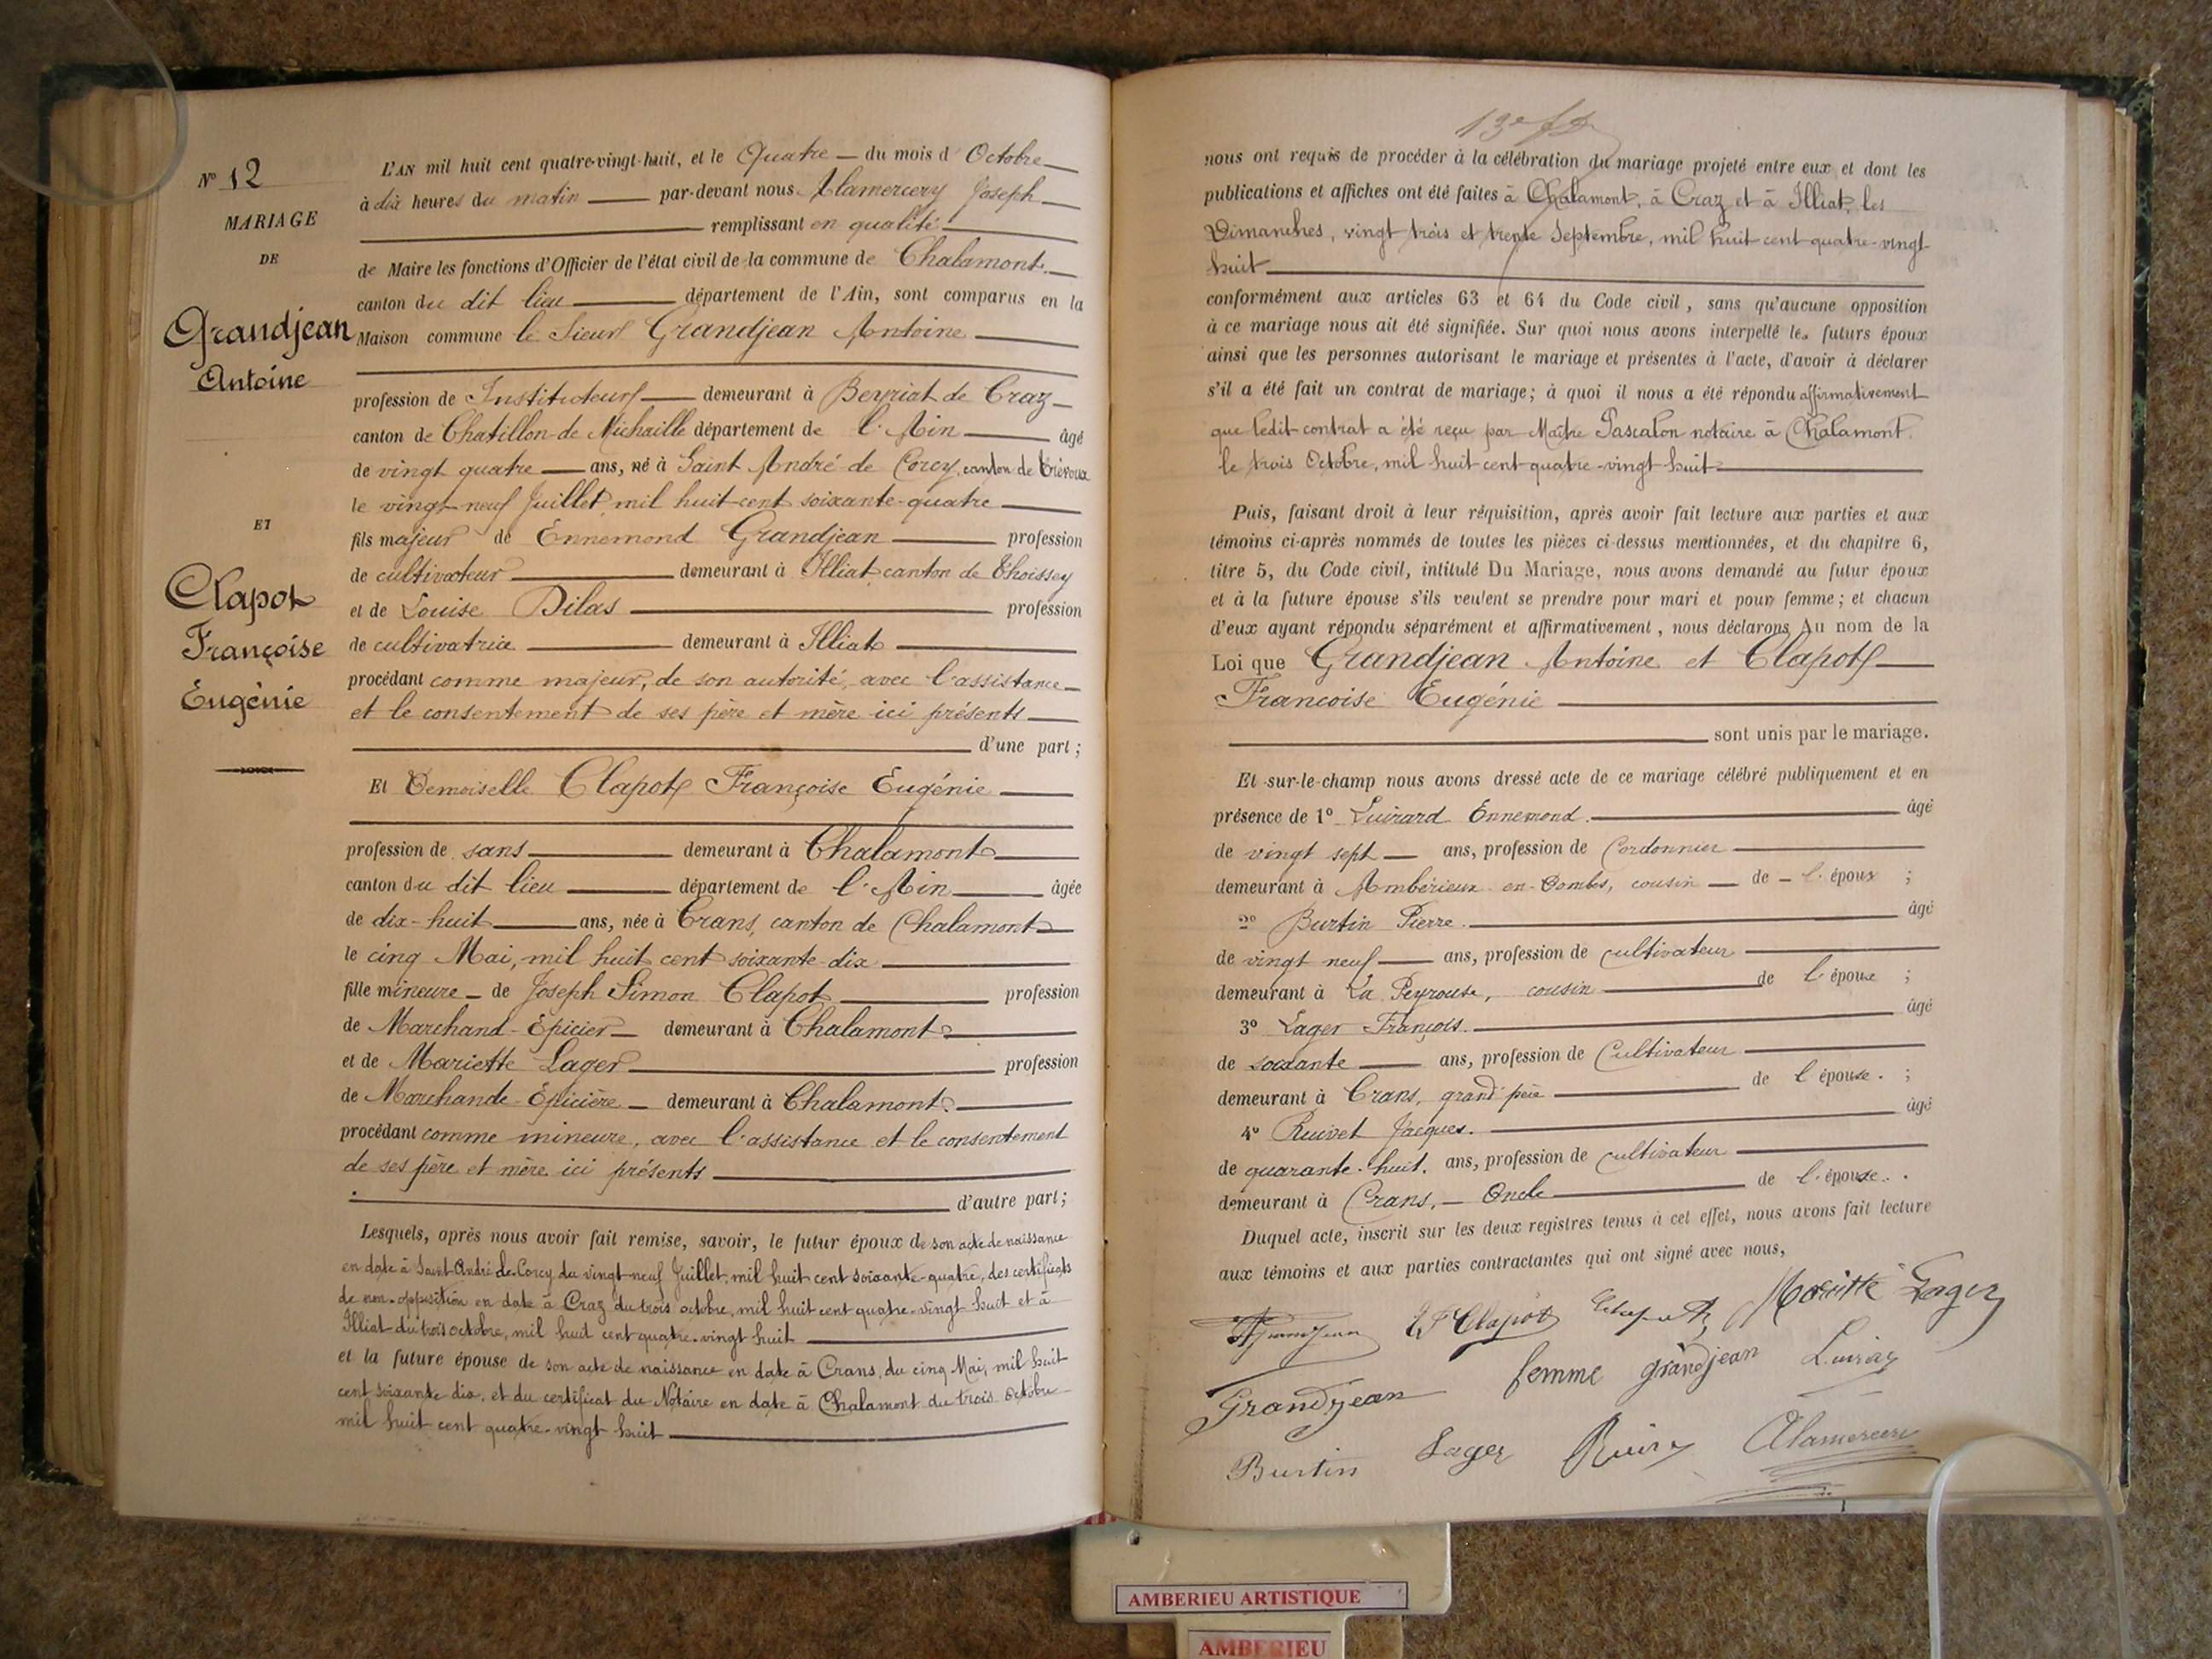 N° 12
MARIAGE
DE
Grandjean
Antoine
ET
Clapot
Françoise
Eugènie
L'AN mil huit cent quatre-vingt-huit, et le Quatre du mois d'Octobre
à dix heures du matin par-devant nous Alamercery Joseph
remplissant en qualité
de Maire les fonctions d'Officier de l'état civil de la commune de Chalamont
canton du dit lieu département de l'Ain, sont comparus en la
Maison commune le Sieur Grandjean Antoine
profession de Instituteur demeurant à Beyriat de Craz
canton de Chatillon-de Michaille département de l'Ain âgé
de vingt quatre ans, né à Saint André de Corcy, canton de Trévoux
le vingt-neuf Juillet mil huit-cent soixante-quatre
fils majeur de Ennemond Grandjean profession
de cultivateur demeurant à Illiat canton de Thoissey
et de Louise Dilas profession
de cultivatrice demeurant à Illiat
procédant comme majeur, de son autorité, avec l'assistance
et le consentement de ses père et mère ici présents
d'une part ;
Et Demoiselle Clapot Françoise Eugénie
profession de sans demeurant à Chalamont
canton du dit lieu département de l'Ain âgée
de dix-huit ans, née à Crans, canton de Chalamont
le cinq Mai, mil huit cent soixante-dix
fille mineure de Joseph Simon Clapot profession
de Marchand-Epicier demeurant à Chalamont
et de Mariette Lager profession
de Marchande-Epicière demeurant à Chalamont.
procédant comme mineure, avec l'assistance et le consentement
de ses père et mère ici présents
d'autre part ;
Lesquels, après nous avoir fait remise, savoir, le futur époux de son acte de naissance
en date à Saint-André de-Corcy du vingt-neuf Juillet, mil huit cent soixante-quatre, des certificats
de non-opposition en date à Craz du trois octobre, mil huit cent quatre-vingt huit et à
Illiat du trois octobre, mil huit cent quatre-vingt huit
et la future épouse de son acte de naissance en date à Crans, du cinq Mai, mil huit
cent soixante dix, et du certificat du Notaire en date à Chalamont du trois octobre
mil huit cent quatre-vingt huit
nous ont requis de procéder à la célébration du mariage projeté entre eux et dont les
publications et affiches ont été faites à Chalamont, à Craz et à Illiat, les
Dimanches, vingt trois et trente Septembre, mil huit cent quatre-vingt
huit
conformément aux articles 63 et 64 du Code civil, sans qu'aucune opposition
à ce mariage nous ait été signifiée. Sur quoi nous avons interpellé les futurs époux
ainsi que les personnes autorisant le mariage et présentes à l'acte, d'avoir à déclarer
s'il a été fait un contrat de mariage ; à quoi il nous a été répondu affirmativement
que ledit contrat a été reçu par Maître Pascalon notaire à Chalamont
le trois Octobre, mil huit cent quatre-vingt-huit
Puis, faisant droit à leur réquisition, après avoir fait lecture aux parties et aux
témoins ci-après nommés de toutes les pièces ci-dessus mentionnées, et du chapitre 6,
titre 5, du Code civil, intitulé Du Mariage, nous avons demandé au futur époux
et à la future épouse s'ils veulent se prendre pour mari et pour femme ; et chacun
d'eux ayant répondu séparément et affirmativement, nous déclarons Au nom de la
Loi que Grandjean Antoine et Clapot
Francoise Eugénie
sont unis par le mariage.
Et sur-le-champ nous avons dressé acte de ce mariage célébré publiquement et en
présence de 1° Luirard Ennemond. âgé
de vingt sept ans, profession de Cordonnier
demeurant à Ambérieux-en-Dombes, cousin de l'époux ;
2° Burtin Pierre. âgé
de vingt neuf ans, profession de cultivateur
demeurant à La Peyrouse, cousin de l'épouse ;
3° Lager François. âgé
de soixante ans, profession de Cultivateur
demeurant à Crans, grand'père de l'épouse. ;
4° Ruivet Jacques. âgé
de quarante-huit. ans, profession de cultivateur
demeurant à Crans, Oncle de l'épouse.
Duquel acte, inscrit sur les deux registres tenus à cet effet, nous avons fait lecture
aux témoins et aux parties contractantes qui ont signé avec nous,
AGrandjean Clapot Mariette Lager
Grandjean femme grandjean
Burtin Lager Alamercery
AMBERIEU ARTISTIQUE
AMBERIEU